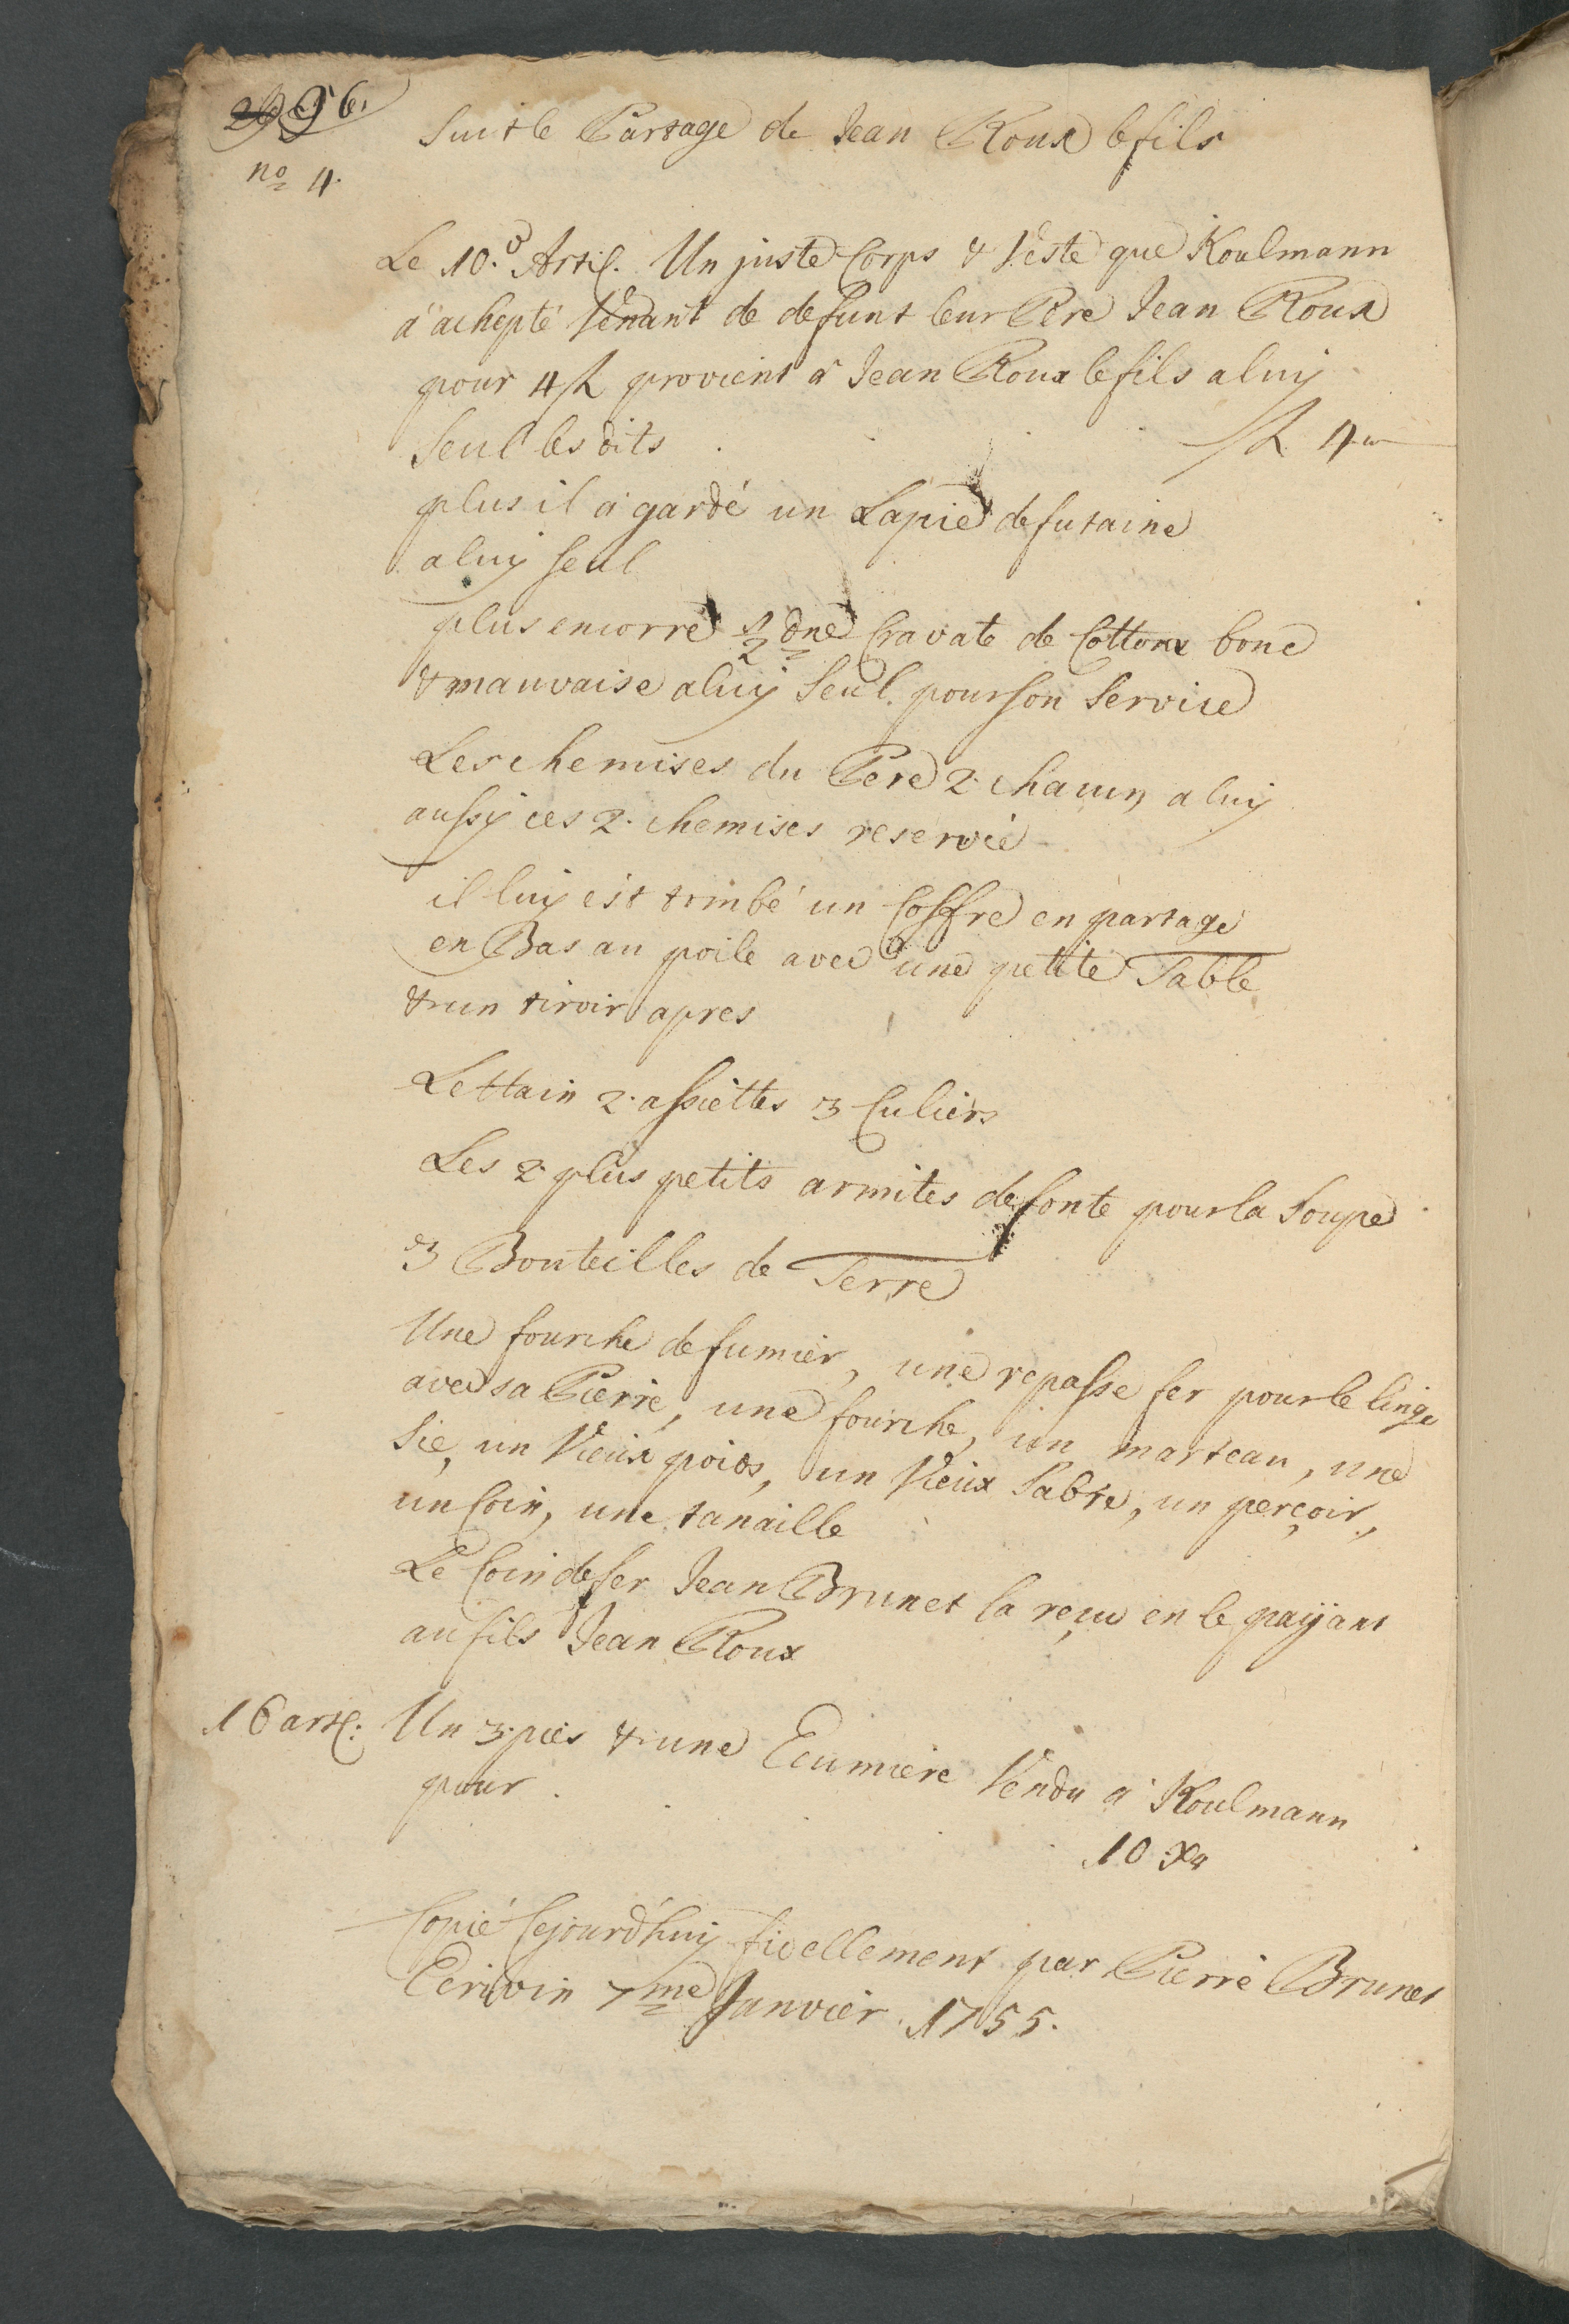 96.
Suit le Partage de Jean Roux le fils
no 4.
Le 10.e Artic. Un juste Corps & Veste que Koulmann
à achepté Venant de defunt leur Pere Jean Roux
pour 4 fl. provient a Jean Roux le fils a luy
Seul les dits . fl. 4 „—
plus il a gardé un Lapié de futaine
a luy seul
plus encorre 1/2 dne Cravate de Cottonx bone
& mauvaise a luy Seul. pour son Service
Les chemises du Pere 2. chacun, a luy
aussy ces 2. chemises reservée
il luy est tombé un Coffre en partage
en Bas au poile avec une petite Table
& un tiroir apres
Lettain 2. assiettes 3 Culiers
Les 2. plus petits armites de fonte pour la Soupe
3 Bouteilles de Terre
Une fourche de fumier, une repasse fer pour le linge
avec sa Pierre, une fourche, un marteau, une
Sie, un Vieux poids, un Vieux Sabre, un perçoir,
un Coin, une tanaille
Le Coin de fer Jean Brunet la reçu en le payant
au fils Jean Roux
16 artc. Un 3. pies & une Ecumiere Vendu a Koulmann
pour . 10 Xr
Copié Cejourd'huy fidellement par Pierre Brunet
Ecrivin 7me Janvier 1755.